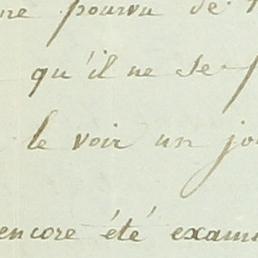 pourvu de
qu'il ne se
le voir un
encore été